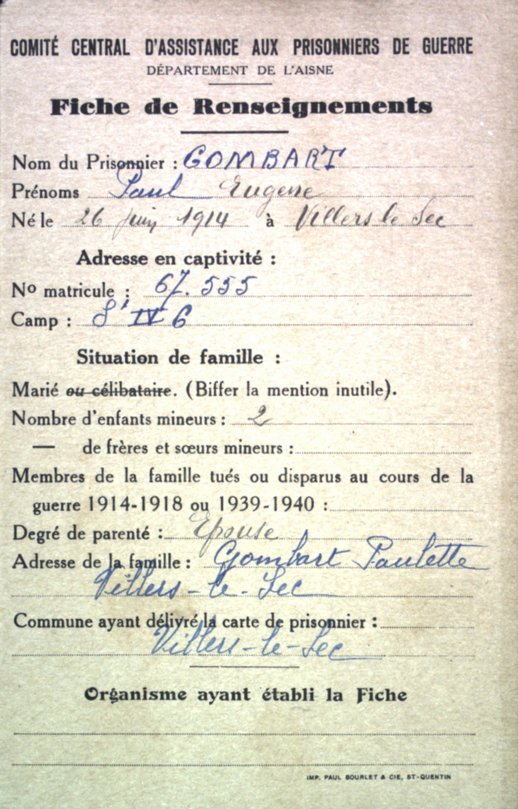 COMITÉ CENTRAL D'ASSISTANCE AUX PRISONNIERS DE GUERRE
DÉPARTEMENT DE L'AISNE
Fiche de Renseignements
Nom du Prisonnier : GOMBART
Prénoms Paul Eugene
Né le 26 juin 1914 à Villers le Sec
Adresse en captivité :
No matricule : 67.555
Camp : IV
Situation de famille :
Marié ou célibataire. (Biffer la mention inutile).
Nombre d'enfants mineurs : 2
— de frères et sœurs mineurs :
Membres de la famille tués ou disparus au cours de la
guerre 1914-1918 ou 1939-1940 :
Degré de parenté : Epouse
Adresse de la famille : Gombart Paulette
Villers-le-Sec
Commune ayant délivré la carte de prisonnier :
Villers-le-Sec
Organisme ayant établi la Fiche
IMP. PAUL BOURLET & CIE, ST-QUENTIN